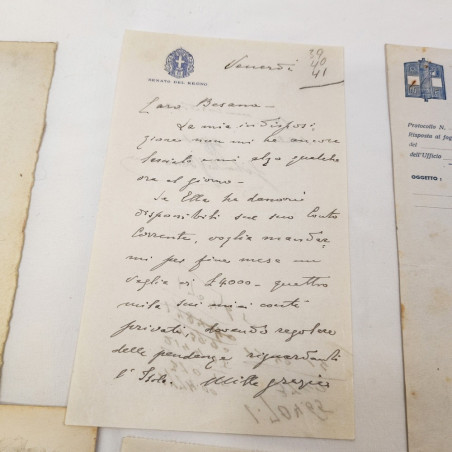 SENATO DEL REGNO
Venerdì
39
40
41
Caro Besana -
La mia indisposi
zione non mi ha ancora
lasciato e mi alzo qualche
ora al giorno -
Se Ella ha denari
disponibili sul suo Conto
Corrente, voglia mandar
mi per fine mese un
vaglia di £4000 - quattro
mila sui miei conti
privati, dovendo regolare
delle pendenze riguardanti
l'Isola. Mille grazie
Protocollo N.
Risposta al fog
del
dell'Ufficio
OGGETTO: